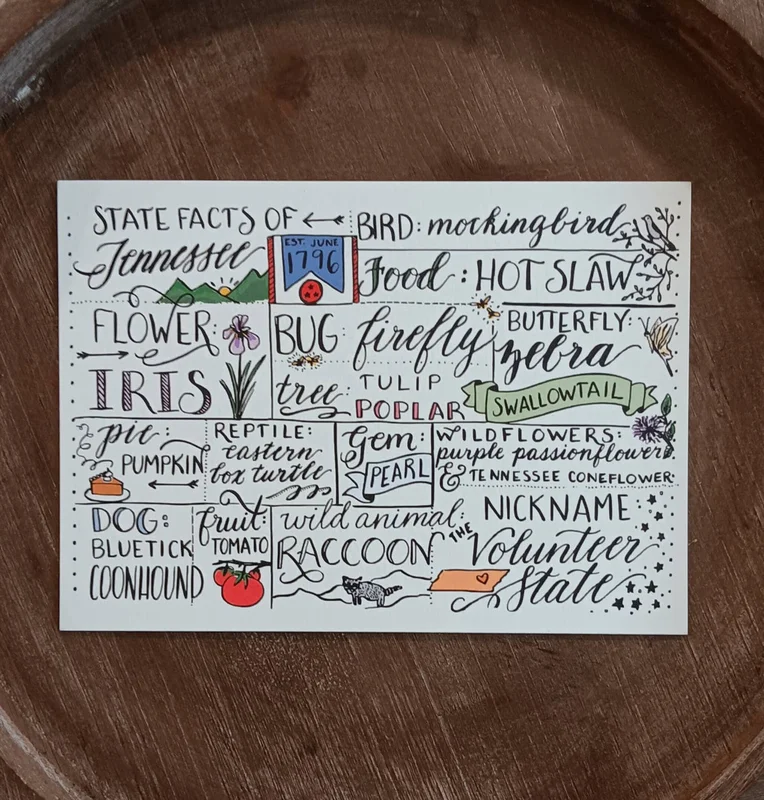 STATE FACTS OF
Tennessee
EST. JUNE
1796
BIRD: mockingbird
Food: HOT SLAW
FLOWER:
IRIS
BUG: firefly
tree: TULIP
POPLAR
BUTTERFLY:
zebra
SWALLOWTAIL
pie:
PUMPKIN
REPTILE:
eastern
box turtle
Gem:
PEARL
WILDFLOWERS:
purple passionflower
& TENNESSEE CONEFLOWER
DOG:
BLUETICK
COONHOUND
fruit:
TOMATO
wild animal:
RACCOON
NICKNAME
THE Volunteer
State